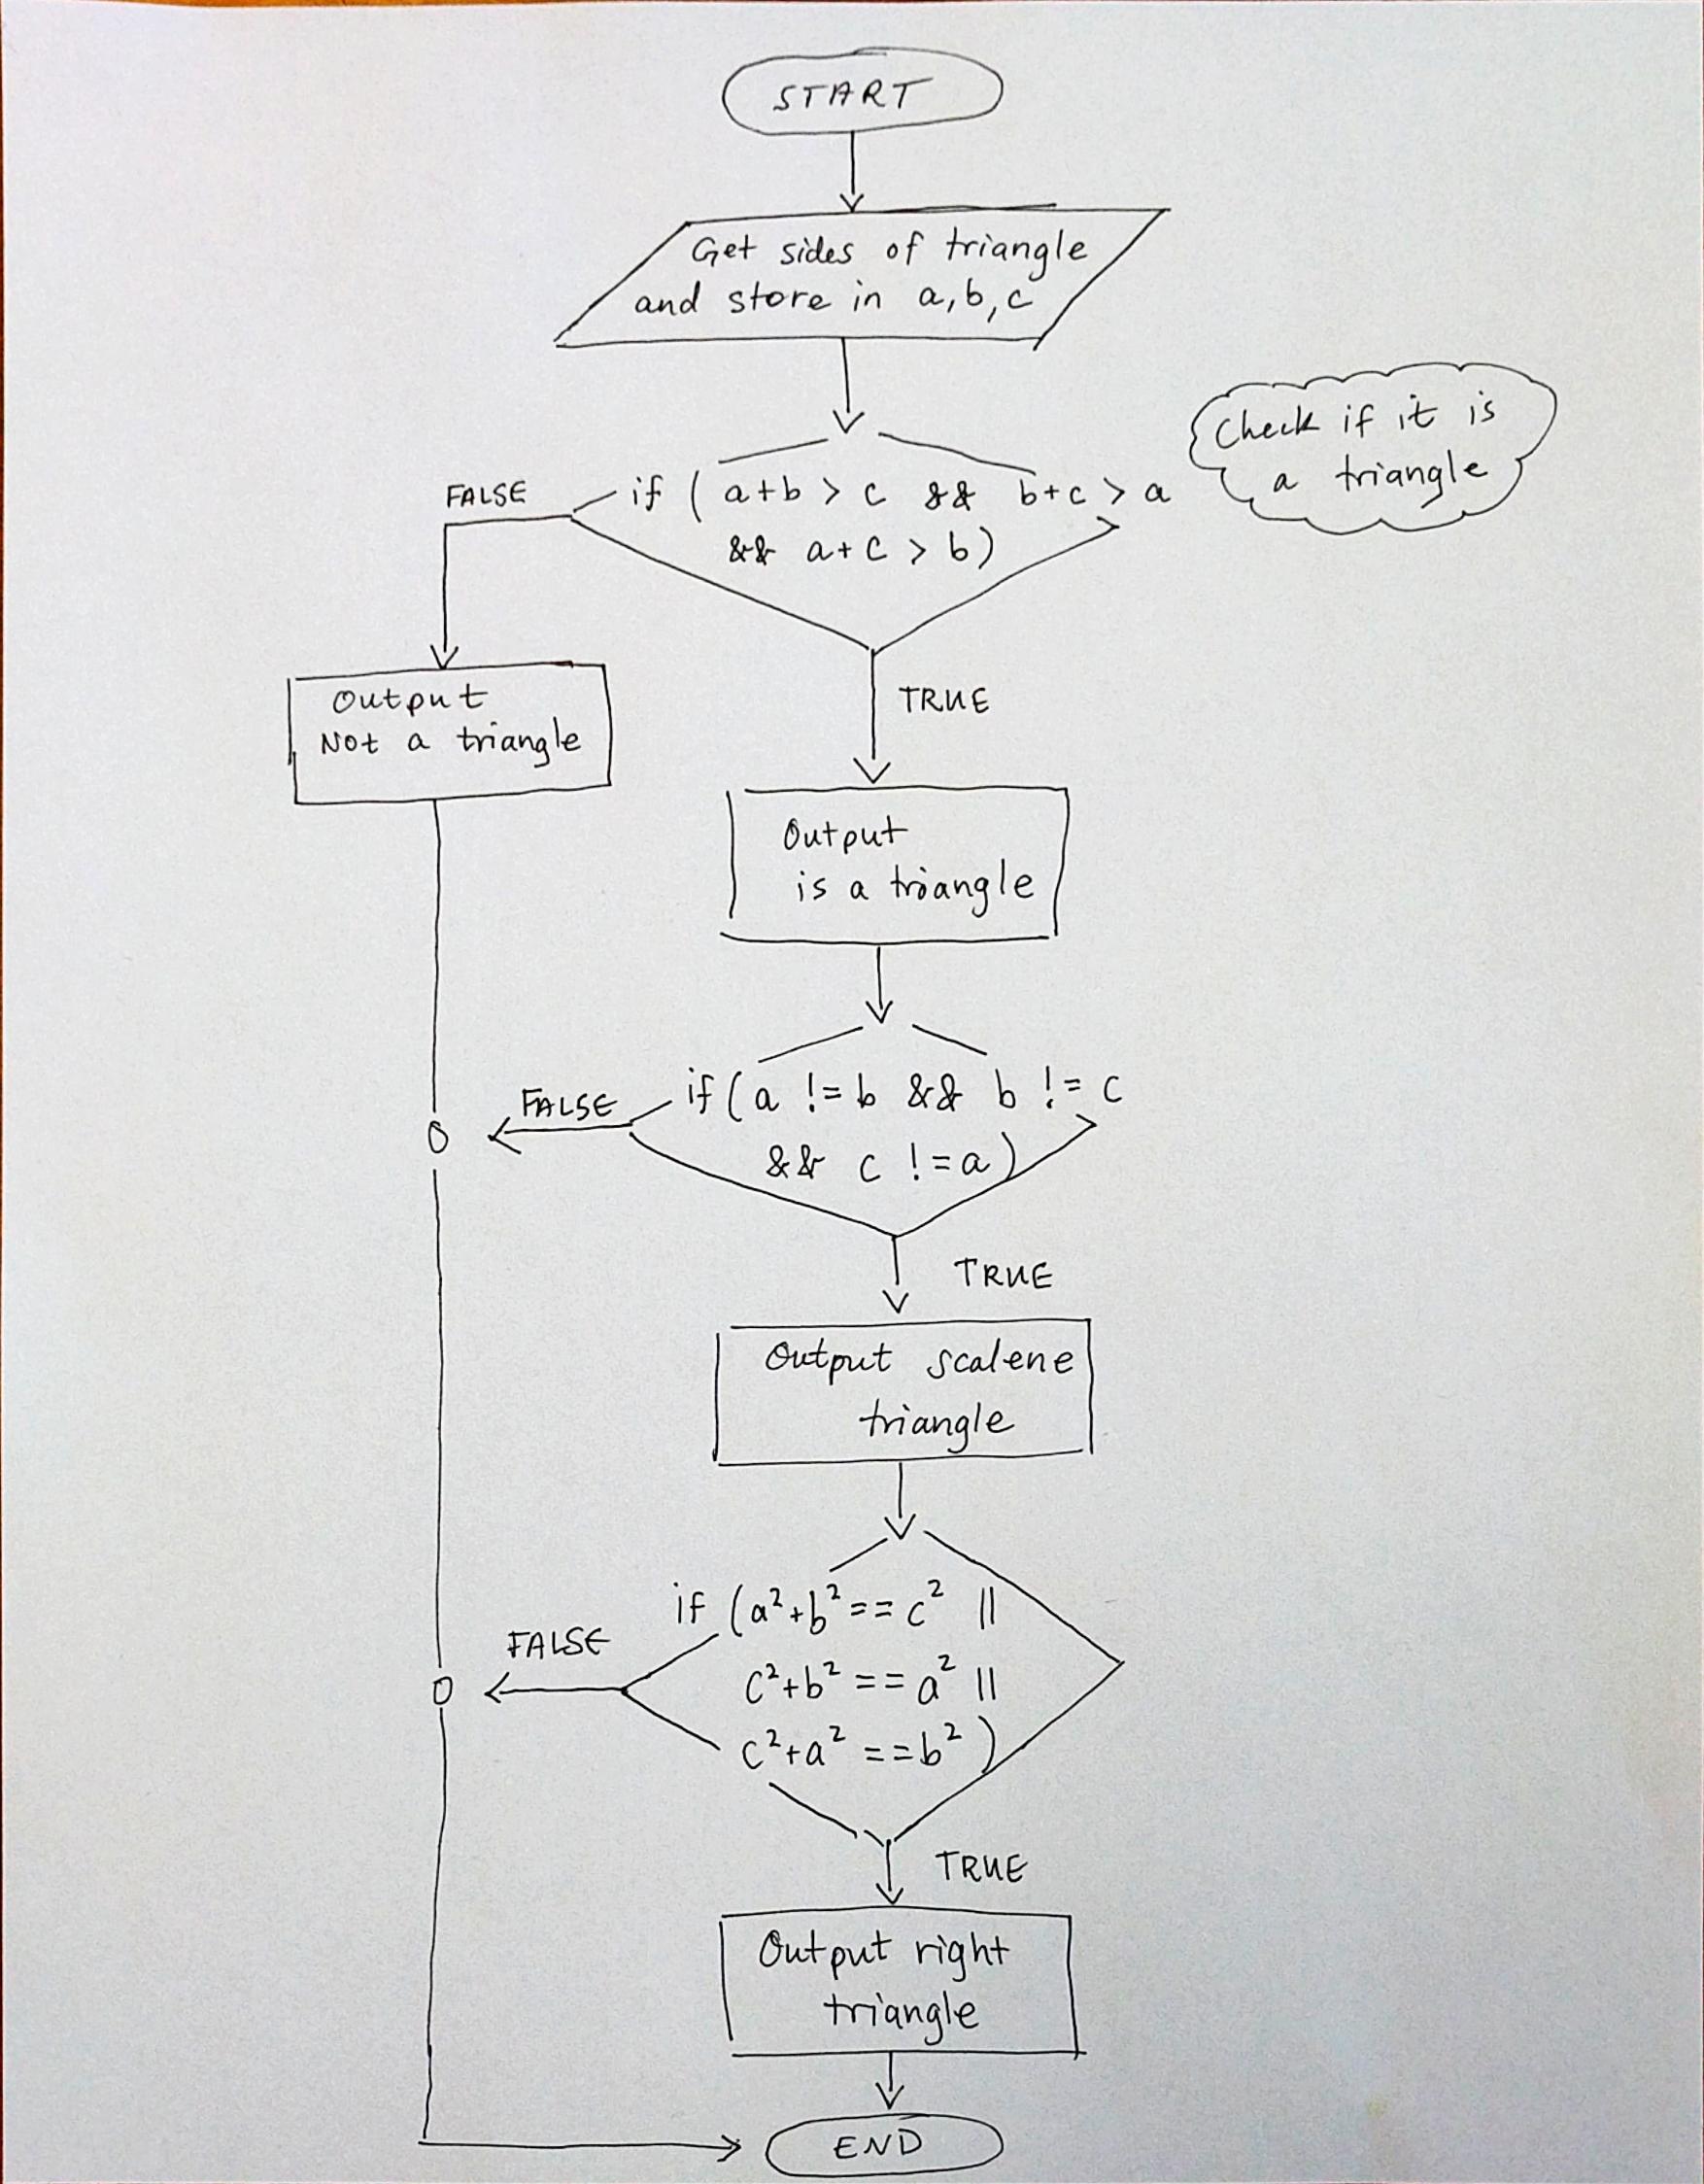 START
Get sides of triangle
and store in a, b, c
Check if it is
a triangle
FALSE
if ( a+b > c && b+c > a
&& a+c > b)
TRUE
Output
Not a triangle
Output
is a triangle
FALSE
if( a != b && b != c
&& c != a)
TRUE
Output scalene
triangle
FALSE
if (a²+b² == c² ||
c²+b² == a² ||
c²+a² == b² )
TRUE
Output right
triangle
END